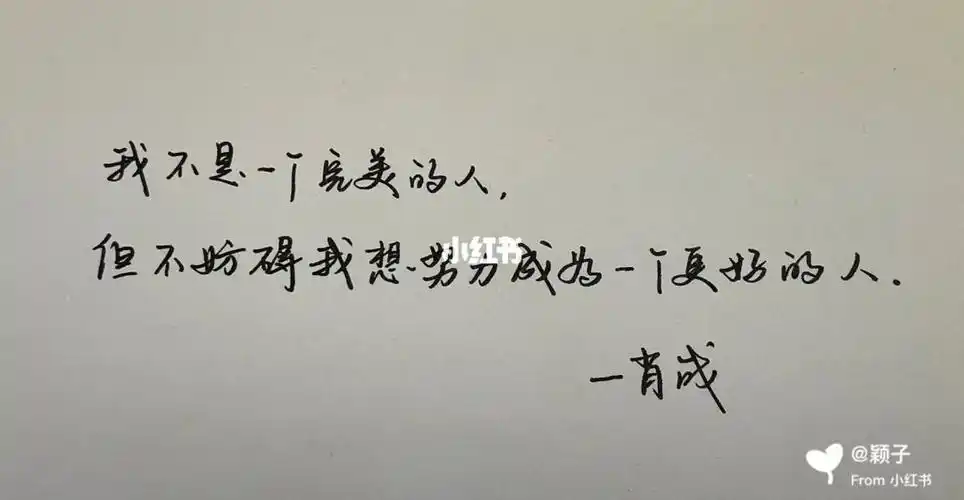 我不是一个完美的人,
但不妨碍我想努力成为一个更好的人.
一肖战
小红书
@颖子
From 小红书